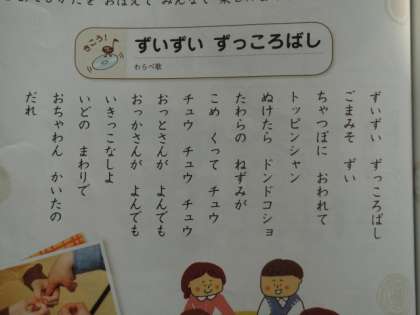 きこう!
ずいずい ずっころばし
わらべ歌
ずいずい ずっころばし
ごまみそ ずい
ちゃつぼに おわれて
トッピンシャン
ぬけたら ドンドコショ
たわらの ねずみが
こめ くって チュウ
チュウ チュウ チュウ
おっとさんが よんでも
おっかさんが よんでも
いきっこなしよ
いどの まわりで
おちゃわん かいたの
だれ